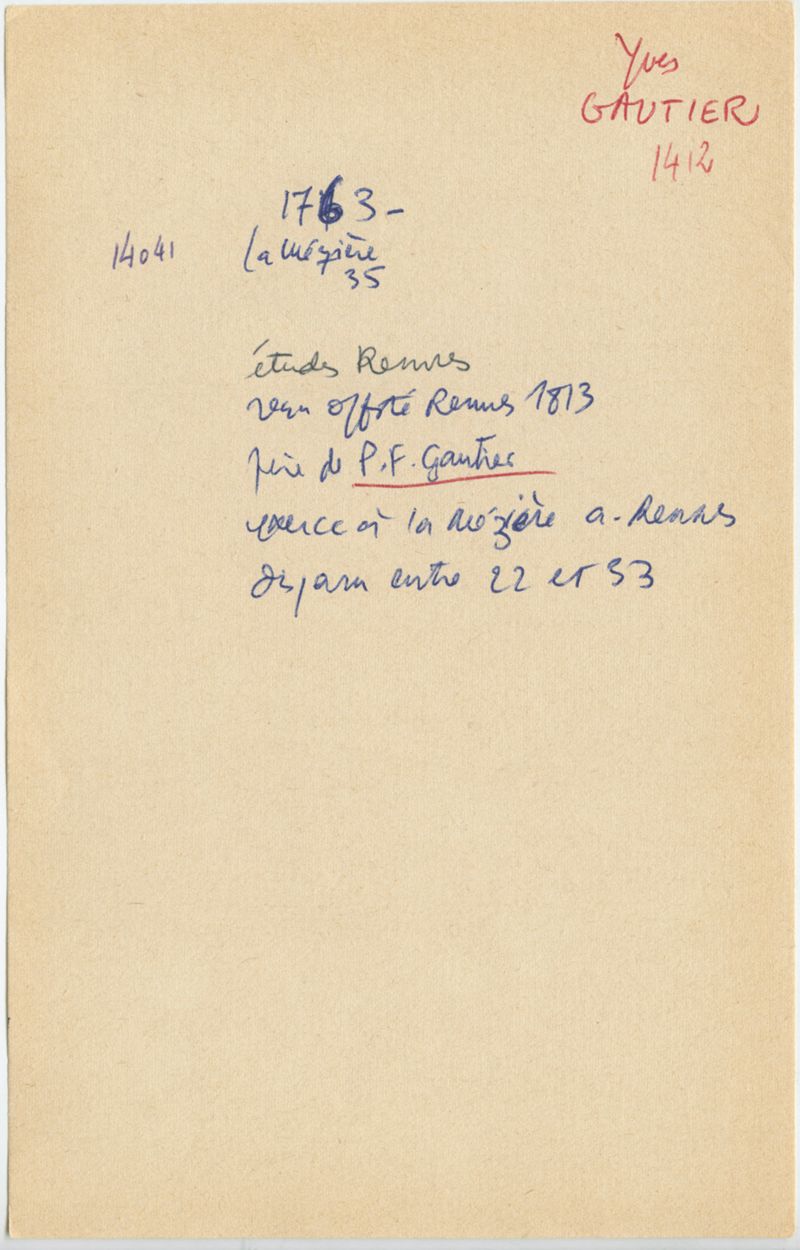 Yves
GAUTIER
1412
1763 -
14041 La Mézière
35
études Rennes
reçu off Rennes 1813
père de P.F. Gautier
exerce à la Mézière a. Rennes
disparu entre 22 et 33